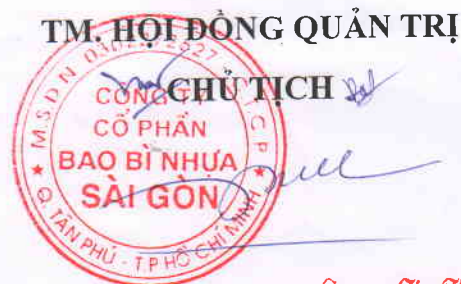 TM. HỘI ĐỒNG QUẢN TRỊ
CHỦ TỊCH
CÔNG TY
CỔ PHẦN
BAO BÌ NHỰA
SÀI GÒN
Q. TÂN PHÚ - T.P HỒ CHÍ MINH